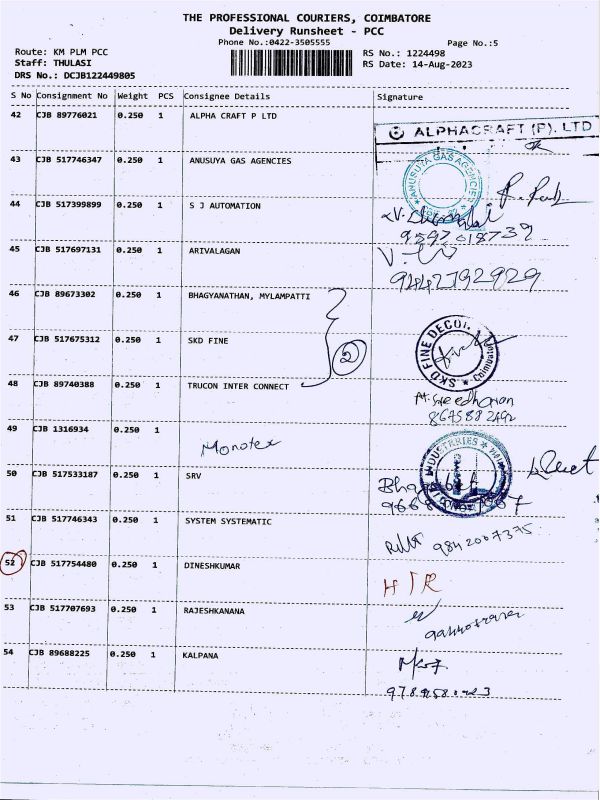 THE PROFESSIONAL COURIERS, COIMBATORE
Delivery Runsheet - PCC
Phone No.:0422-3505555 Page No.:5
Route: KM PLM PCC RS No.: 1224498
Staff: THULASI RS Date: 14-Aug-2023
DRS No.: DCJB122449805
S No Consignment No Weight PCS Consignee Details Signature
42 CJB 89776021 0.250 1 ALPHA CRAFT P LTD
ALPHACRAFT (P). LTD
43 CJB 517746347 0.250 1 ANUSUYA GAS AGENCIES
ANUSUYA GAS AGENCIES
44 CJB 517399899 0.250 1 S J AUTOMATION
45 CJB 517697131 0.250 1 ARIVALAGAN
9442792929
46 CJB 89673302 0.250 1 BHAGYANATHAN, MYLAMPATTI
2
47 CJB 517675312 0.250 1 SKD FINE
SKD FINE DECOR Coimbatore
48 CJB 89740388 0.250 1 TRUCON INTER CONNECT
49 CJB 1316934 0.250 1
Monotex
INDUSTRIES
50 CJB 517533187 0.250 1 SRV
51 CJB 517746343 0.250 1 SYSTEM SYSTEMATIC
9842007375
52 CJB 517754480 0.250 1 DINESHKUMAR
53 CJB 517707693 0.250 1 RAJESHKANANA
54 CJB 89688225 0.250 1 KALPANA